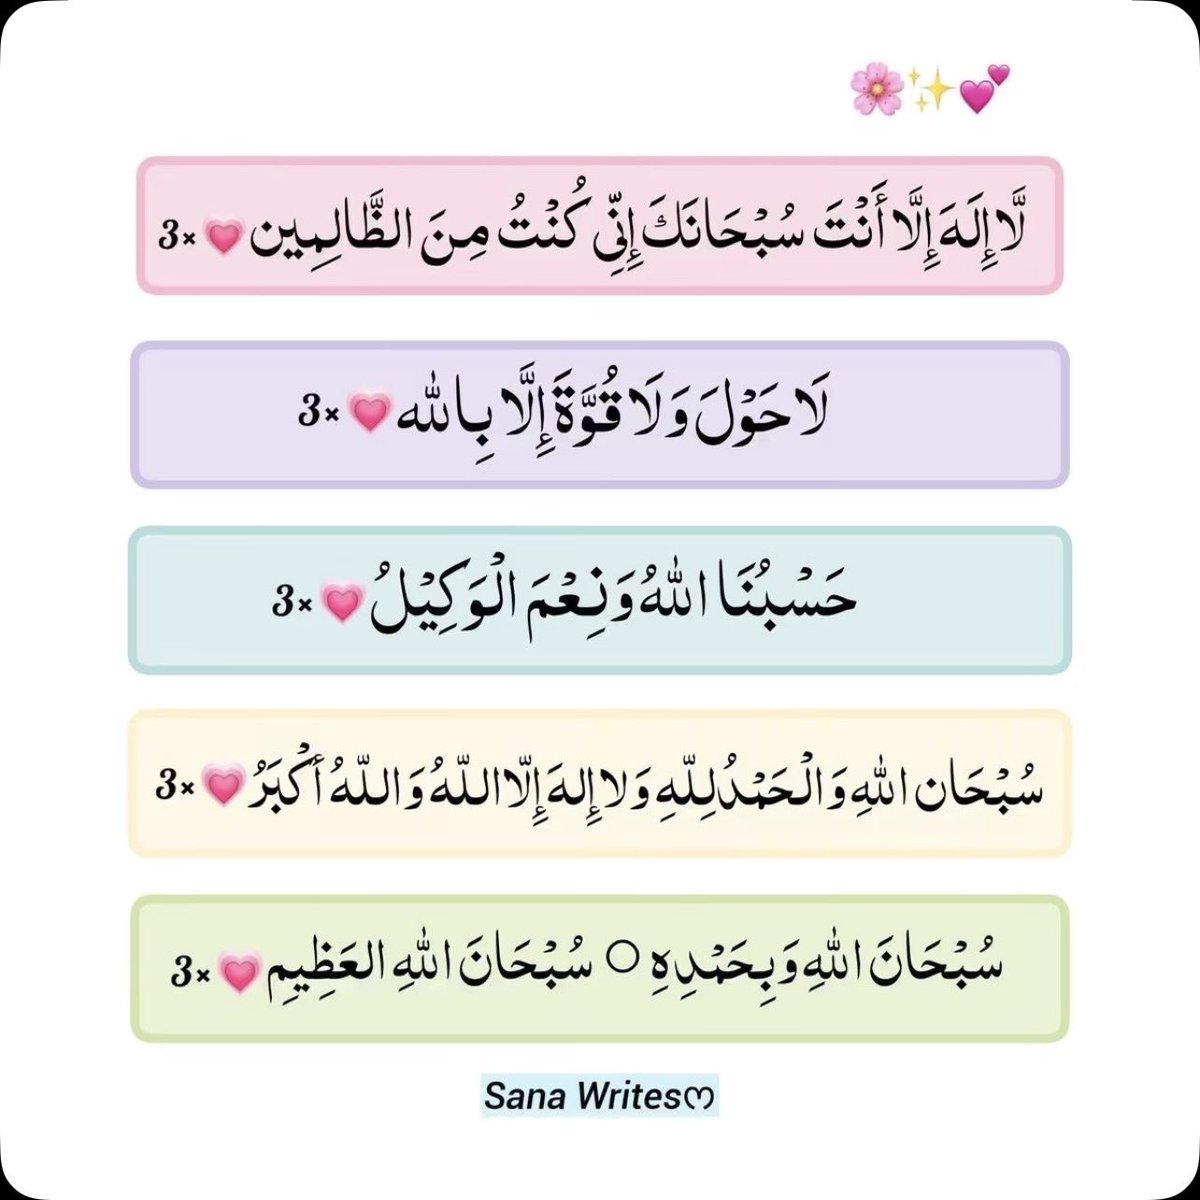 🌸✨💕
لَّا إِلَهَ إِلَّا أَنْتَ سُبْحَانَكَ إِنِّي كُنْتُ مِنَ الظَّالِمِين 💗×3
لَا حَوْلَ وَلَا قُوَّةَ إِلَّا بِالله 💗×3
حَسْبُنَا اللهُ وَنِعْمَ الْوَكِيْلُ 💗×3
سُبْحَان اللهِ وَالْحَمْدُ لِلّهِ وَلا إِلهَ إِلّا اللّهُ وَاللّهُ أَكْبَرُ 💗×3
سُبْحَانَ اللهِ وَبِحَمْدِهِ ○ سُبْحَانَ اللهِ العَظِيمِ 💗×3
Sana Writesෆ